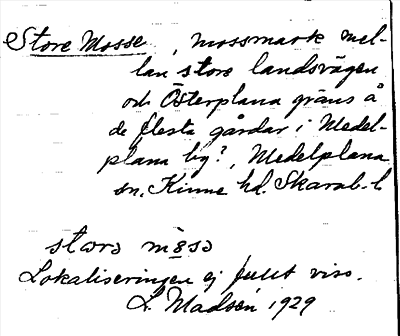 Store Mosse, mossmark mel-
lan stora landsvägen
och Österplana gräns å
de flesta gårdar i Medel-
plana by?, Medelplana
sn. Kinne hd. Skarab. l.
stora mosa
Lokaliseringen ej fullt viss.
L. Madsén 1929